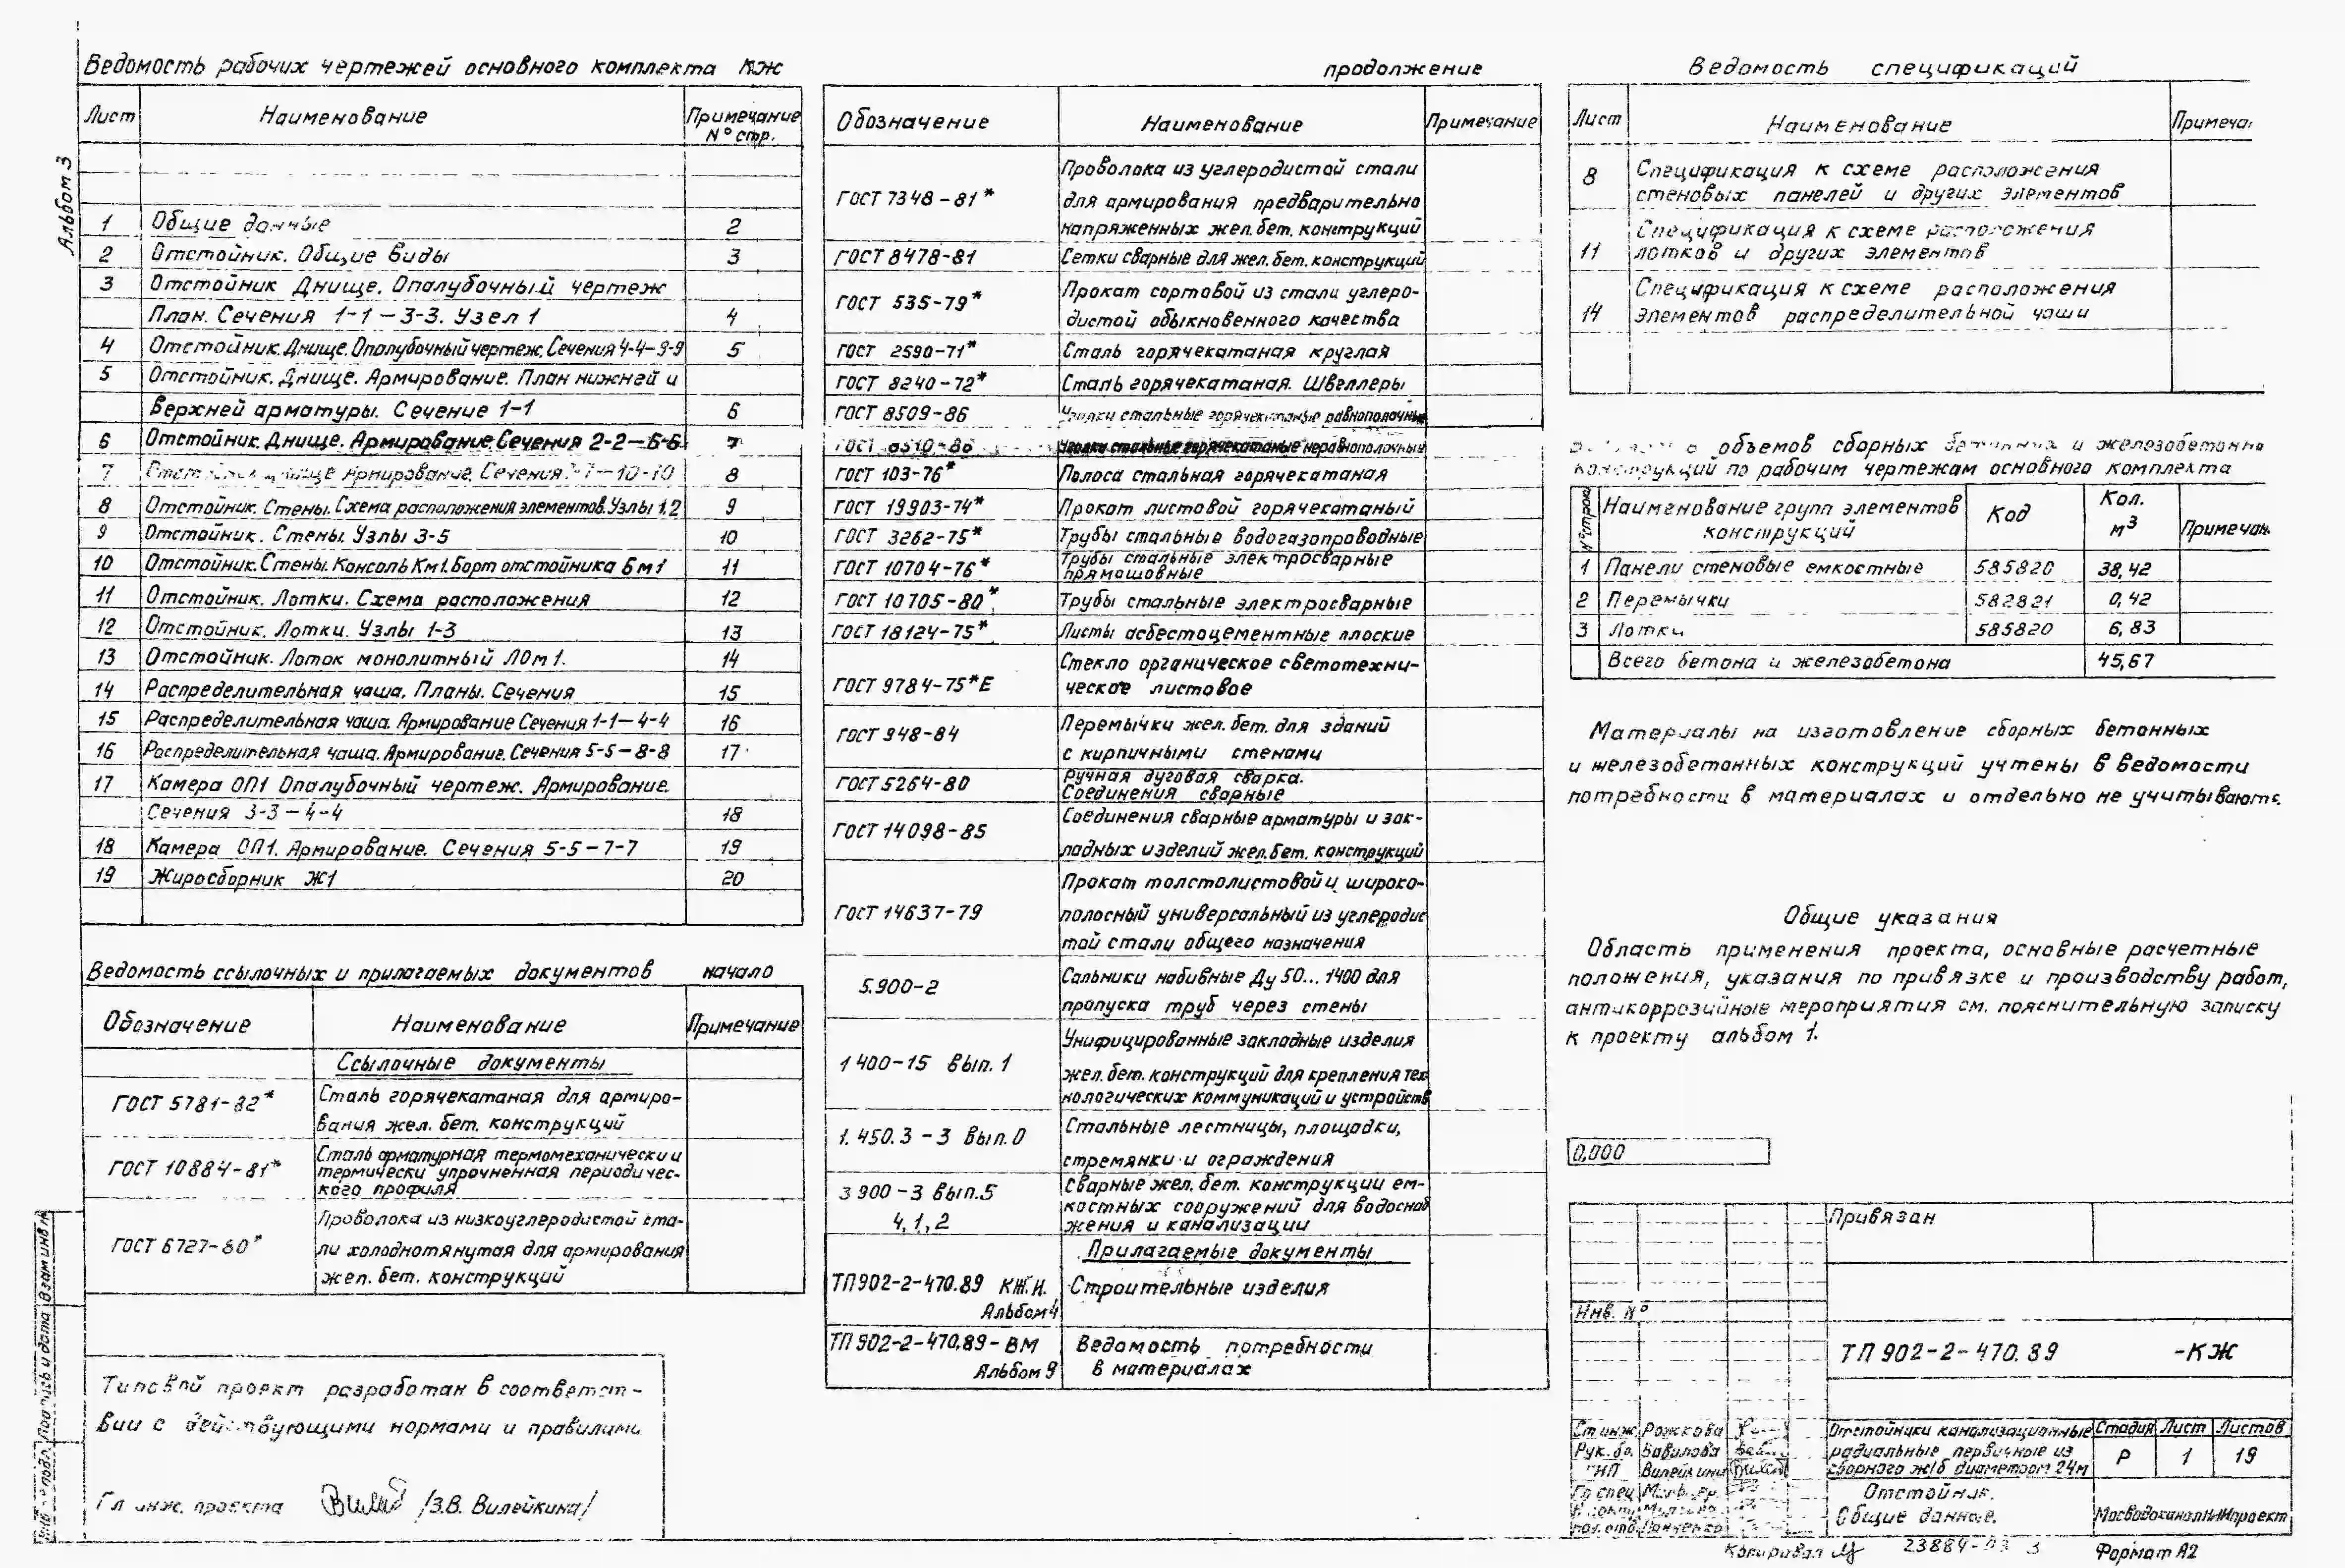 Альбом 3
Ведомость рабочих чертежей основного комплекта КЖ
Лист Наименование Примечание
N° стр.
1 Общие данные 2
2 Отстойник. Общие виды 3
3 Отстойник Днище. Опалубочный чертеж
План. Сечения 1-1 – 3-3. Узел 1 4
4 Отстойник. Днище. Опалубочный чертеж. Сечения 4-4 – 9-9 5
5 Отстойник. Днище. Армирование. План нижней и
верхней арматуры. Сечение 1-1 6
6 Отстойник. Днище. Армирование. Сечения 2-2 – 6-6 7
7 Армирование. Сечения 7-7 – 10-10 8
8 Отстойник. Стены. Схема расположения элементов. Узлы 1,2 9
9 Отстойник. Стены. Узлы 3-5 10
10 Отстойник. Стены. Консоль Км1. Борт отстойника Бм1 11
11 Отстойник. Лотки. Схема расположения 12
12 Отстойник. Лотки. Узлы 1-3 13
13 Отстойник. Лоток монолитный ЛОм1. 14
14 Распределительная чаша. Планы. Сечения 15
15 Распределительная чаша. Армирование Сечения 1-1 – 4-4 16
16 Распределительная чаша. Армирование. Сечения 5-5 – 8-8 17
17 Камера ОП1 Опалубочный чертеж. Армирование.
Сечения 3-3 – 4-4 18
18 Камера ОП1. Армирование. Сечения 5-5 – 7-7 19
19 Жиросборник Ж1 20
Ведомость ссылочных и прилагаемых документов начало
Обозначение Наименование Примечание
Ссылочные документы
ГОСТ 5781-82* Сталь горячекатаная для армиро-
вания жел. бет. конструкций
ГОСТ 10884-81* Сталь арматурная термомеханически и
термически упрочненная периодичес-
кого профиля
ГОСТ 6727-80* Проволока из низкоуглеродистой ста-
ли холоднотянутая для армирования
жел. бет. конструкций
Типовой проект разработан в соответст-
вии с действующими нормами и правилами
Гл инж. проекта /З.В. Вилейкина/
продолжение
Обозначение Наименование Примечание
ГОСТ 7348-81* Проволока из углеродистой стали
для армирования предварительно
напряженных жел. бет. конструкций
ГОСТ 8478-81 Сетки сварные для жел. бет. конструкций
ГОСТ 535-79* Прокат сортовой из стали углеро-
дистой обыкновенного качества
ГОСТ 2590-71* Сталь горячекатаная круглая
ГОСТ 8240-72* Сталь горячекатаная. Швеллеры
ГОСТ 8509-86 Уголки стальные горячекатаные равнополочные
ГОСТ 8510-86 Уголки стальные горячекатаные неравнополочные
ГОСТ 103-76* Полоса стальная горячекатаная
ГОСТ 19903-74* Прокат листовой горячекатаный
ГОСТ 3262-75* Трубы стальные водогазопроводные
ГОСТ 10704-76* Трубы стальные электросварные
прямошовные
ГОСТ 10705-80* Трубы стальные электросварные
ГОСТ 18124-75* Листы асбестоцементные плоские
ГОСТ 9784-75*Е Стекло органическое светотехни-
ческое листовое
ГОСТ 948-84 Перемычки жел. бет. для зданий
с кирпичными стенами
ГОСТ 5264-80 Ручная дуговая сварка.
Соединения сварные
ГОСТ 14098-85 Соединения сварные арматуры и зак-
ладных изделий жел. бет. конструкций
ГОСТ 14637-79 Прокат толстолистовой и широко-
полосный универсальный из углеродис
той стали общего назначения
5.900-2 Сальники набивные Ду 50... 1400 для
пропуска труб через стены
1 400-15 Вып. 1 Унифицированные закладные изделия
жел. бет. конструкций для крепления тех
нологических коммуникаций и устройств
1. 450.3-3 Вып. 0 Стальные лестницы, площадки,
стремянки и ограждения
3 900-3 Вып. 5 Сварные жел. бет. конструкции ем-
4, 1, 2 костных сооружений для водоснаб
жения и канализации
Прилагаемые документы
ТП902-2-470.89 КЖ.И. Строительные изделия
Альбом 4
ТП902-2-470.89-ВМ Ведомость потребности
Альбом 9 в материалах
Ведомость спецификаций
Лист Наименование Примеча
8 Спецификация к схеме расположения
стеновых панелей и других элементов
11 Спецификация к схеме расположения
лотков и других элементов
14 Спецификация к схеме расположения
элементов распределительной чаши
объемов сборных бетонных и железобетонны
конструкций по рабочим чертежам основного комплекта
N° строки Наименование групп элементов конструкций Код Кол. м³ Примечан.
1 Панели стеновые емкостные 585820 38,42
2 Перемычки 582821 0,42
3 Лотки 585820 6,83
Всего бетона и железобетона 45,67
Материалы на изготовление сборных бетонных
и железобетонных конструкций учтены в ведомости
потребности в материалах и отдельно не учитываютс.
Общие указания
Область применения проекта, основные расчетные
положения, указания по привязке и производству работ,
антикоррозийные мероприятия см. пояснительную записку
к проекту альбом 1.
0,000
Привязан
Инв. N°
ТП 902-2-470.89 -КЖ
Ст инж. Рожкова
Рук. бр. Вавилова
ГИП Вилейкина
Гл спец
Отстойники канализационные
радиальные первичные из
сборного ж/б диаметром 24м
Стадия Лист Листов
Р 1 19
Отстойник.
Общие данные.
МосводоканалНИИпроект
Копировал 23884-03 3 Формат А2
Инв. N° подл. Подпись и дата Взам инв N